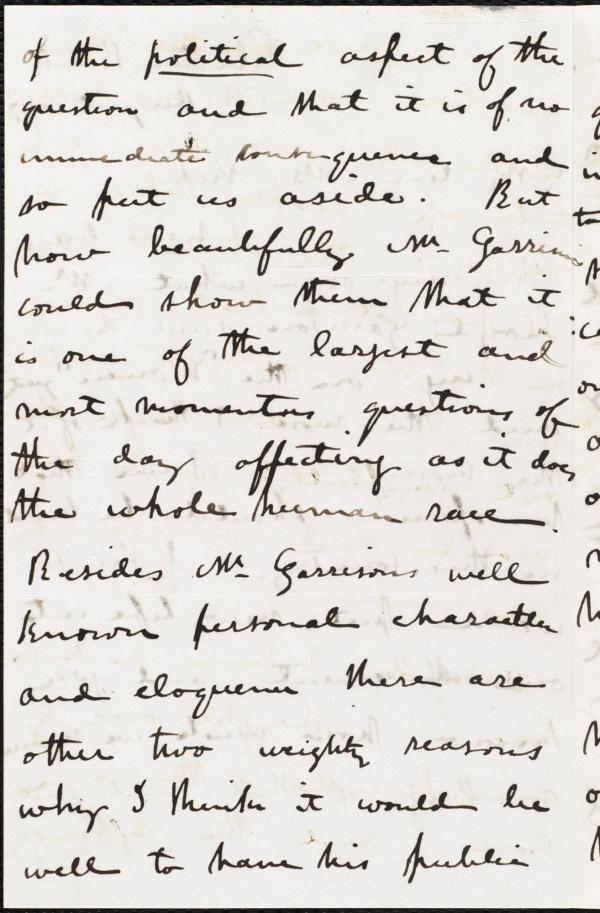 of the political aspect of the
question and that it is of no
immediate consequence and
so put us aside. But
how beautifully Mr. Garrison
could show them that it
is one of the largest and
most momentous questions of
the day affecting as it does
the whole human race.
Besides Mr. Garrisons well
known personal character
and eloquence there are
other two weighty reasons
why I think it would be
well to have his public